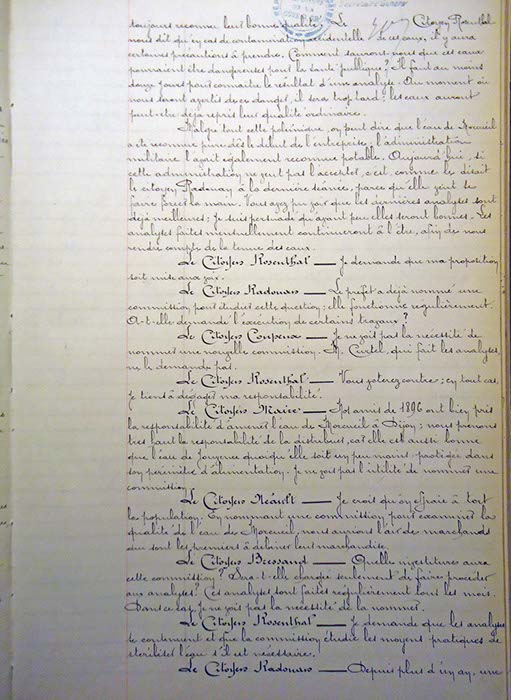 toujours reconnu leur bonne qualité. Le Citoyen Rosenthal
nous dit que en cas de contamination accidentelle de ces eaux, il y aura
certaines précautions à prendre. Comment saurons-nous que ces eaux
pourraient être dangereuses pour la santé publique ? Il faut au moins
douze jours pour connaître le résultat d'une analyse. Au moment où
nous serons avertis de ce danger, il sera trop tard : les eaux auront
peut-être déjà repris leur qualité ordinaire.
Malgré tout cette polémique, on peut dire que l'eau de Morcueil
a été reconnue pure dès le début de l'entreprise ; l'administration
militaire l'avait également reconnue potable. Aujourd'hui, si
cette administration ne veut pas l'accepter, c'est, comme le disait
le citoyen Radouan à la dernière séance, parce qu'elle veut se
faire forcer la main. Vous avez pu voir que les dernières analyses sont
déjà meilleures ; Je suis persuadé qu'avant peu elles seront bonnes. Les
analyses faites mensuellement continueront à l'être, afin de nous
rendre compte de la tenue des eaux.
Le Citoyen Rosenthal — Je demande que ma proposition
soit mise aux voix.
Le Citoyen Radouan — Le préfet a déjà nommé une
commission pour étudier cette question ; elle fonctionne régulièrement.
A-t-elle demandé l'exécution de certains travaux ?
Le Citoyen Coupeux — Je ne vois pas la nécessité de
nommer une nouvelle commission. M. Curtel, qui fait les analyses,
ne le demande pas.
Le Citoyen Rosenthal — Vous voterez contre ; en tout cas,
je tiens à dégager ma responsabilité.
Le Citoyen Maire — Nos amis de 1896 ont bien pris
la responsabilité d'amener l'eau de Morcueil à Dijon ; nous prenons
très haut la responsabilité de la distribuer, car elle est aussi bonne
que l'eau de Jouvence quoiqu'elle soit un peu moins protégée dans
son périmètre d'alimentation. Je ne vois pas l'utilité de nommer une
commission.
Le Citoyen Néault — Je crois qu'on effraie à tort
la population. En nommant une commission pour examiner la
qualité de l'eau de Morcueil, nous aurions l'air de marchands
qui sont les premiers à dénier leur marchandise.
Le Citoyen Bessand — Quelle investiture aura
cette commission ? Sera-t-elle chargée seulement de faire procéder
aux analyses ? Ces analyses sont faites régulièrement tous les mois.
Dans ce cas, je ne vois pas la nécessité de la nommer.
Le Citoyen Rosenthal — Je demande que les analyses
se continuent et que la commission étudie les moyens pratiques de
stériliser l'eau s'il est nécessaire.
Le Citoyen Radouan — Depuis plus d'un an, une